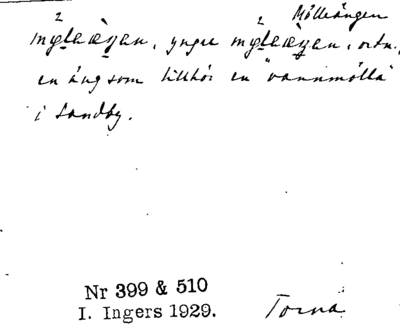 Mölleängen
2 2
mylaäŋan, yngre mylaäŋan, ortn.,
en äng som tillhör en "vannmölla"
i Sandby.
Nr 399 & 510
I. Ingers 1929. Torna